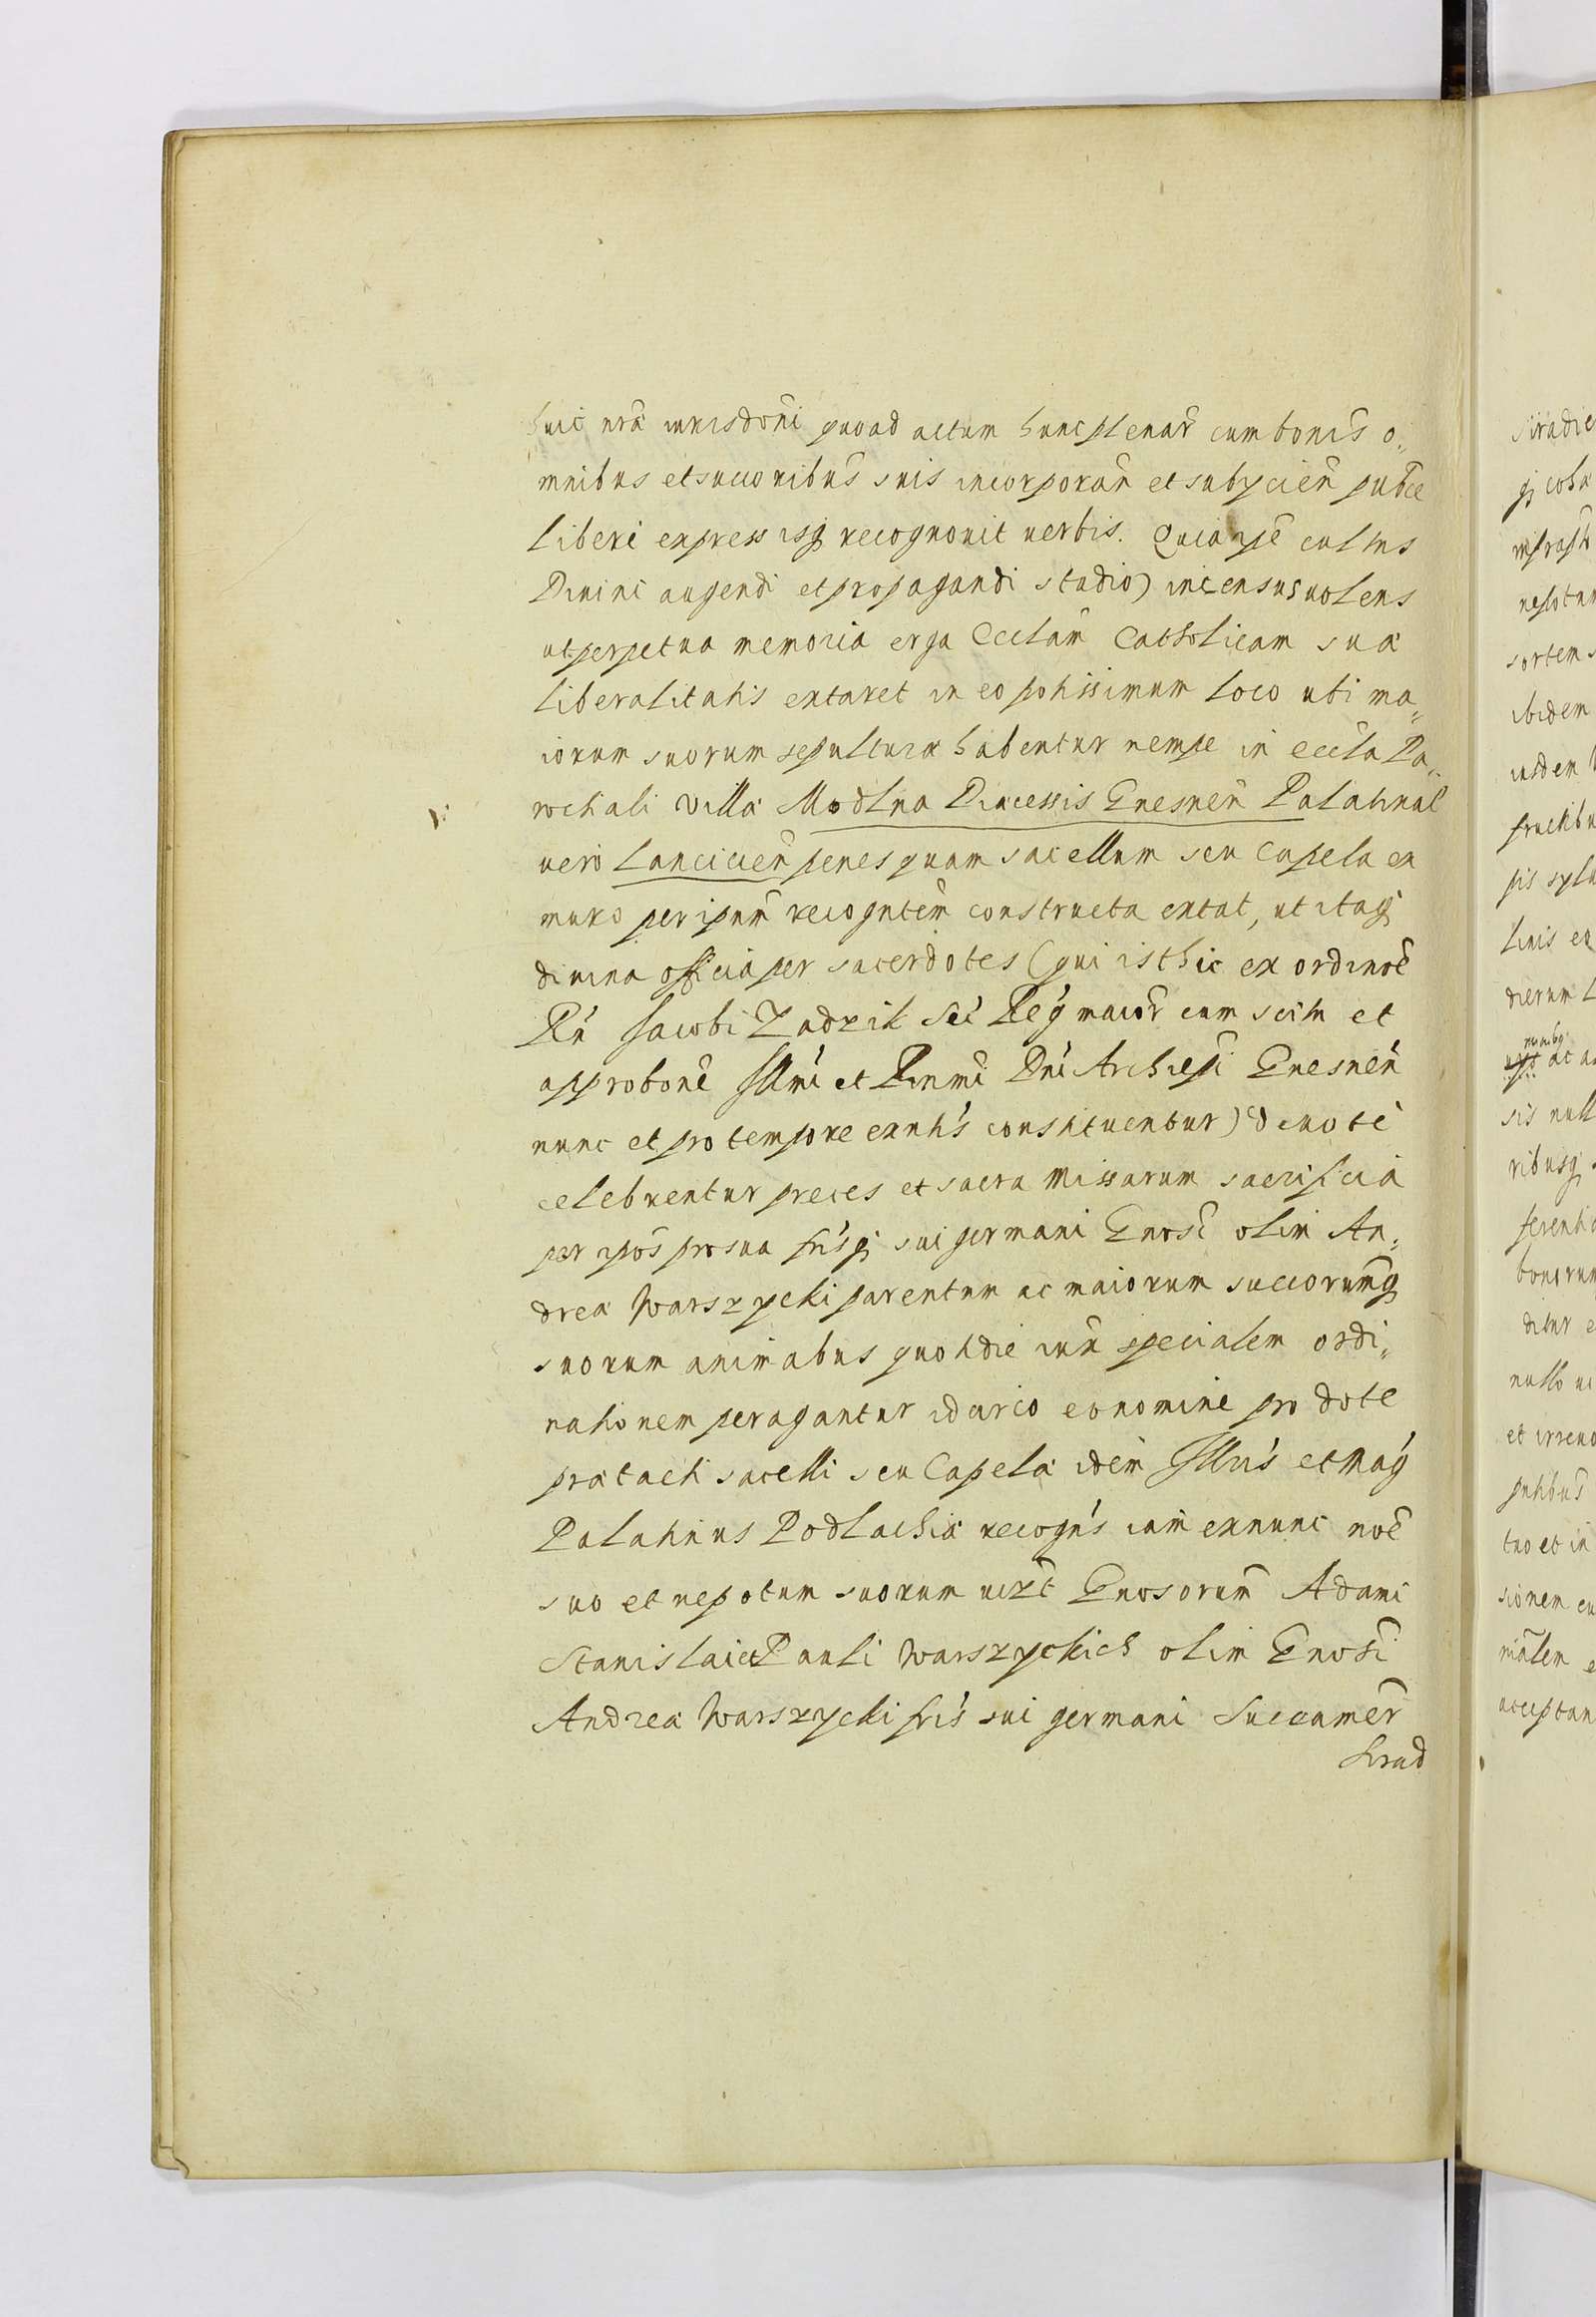 huic nrã iurisdoni quoad actum hunc plenar̃ cum bonis o„
mnibus et succoribus suis incorporan̄ et subycien̄ pub̄ce
liberè expressisq̨ recognouit uerbis. Quia ip̄e cultus
Diuini augendi et propagandi studio incensus uolens
ut perpetua memoria erga Ecclam̄ Catholicam sua
liberalitatis extaret in eo potissimum loco ubi ma„
iorum suorum sepultura habentur nempe in eccla Pa„
rochali villa Modlna Diaecessis Gnesnen̄ Palatinat
uero Lancicien̄ penes quam sacellum seu Capela ex
muro per ipsum̄ recogntem̄ constructa extat, ut itaq̨
diuina officia per sacerdotes (qui isthic ex ordinoẽ
Rn̄ Jacobi Zadzik Sei Reg̃ maior̃ cum scitu et
approbone Illmi et Rmmi Dni Archiepi Gnesnen̄
nunc et pro tempore exntis constituentur) deuotè
celebrentur preces et sacra Missarum sacrificia
per ip̄os pro sua fris q̨ sui germani Gnosi olim An„
drea Warszycki parentum ac maiorum succorumq̨
suorum animabus quotidie iux̃ specialem ordi„
nationem peragantur idcirco eo nomine pro dote
prætacti sacelli seu Capela idem Illris et Mag̃
Palatinus Podlachia recogn̄s iam exnunc noẽ
suo et nepotum suorum uizt Gnosorum Adami
Stanislai et Pauli Warszyckich olim Gnosi
Andrea Warszycki fris sui germani Succamer̃
Sirad